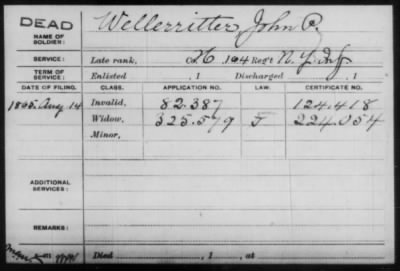 DEAD
NAME OF SOLDIER: Wellerritter, John P.
SERVICE: Late rank, H. 164 Reg't N.Y. Inf
TERM OF SERVICE: Enlisted , 1 Discharged , 1
DATE OF FILING. CLASS. APPLICATION NO. LAW. CERTIFICATE NO.
1865. Aug 14 Invalid, 82.387 124.418
Widow, 325.579 F 224.054
Minor,
ADDITIONAL SERVICES:
REMARKS:
Died , 1 , at